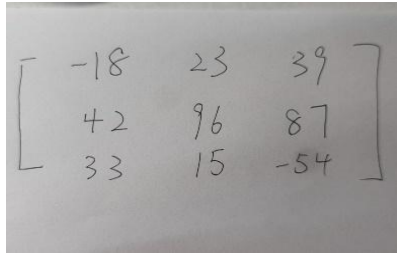 -18 23 39
42 96 87
33 15 -54